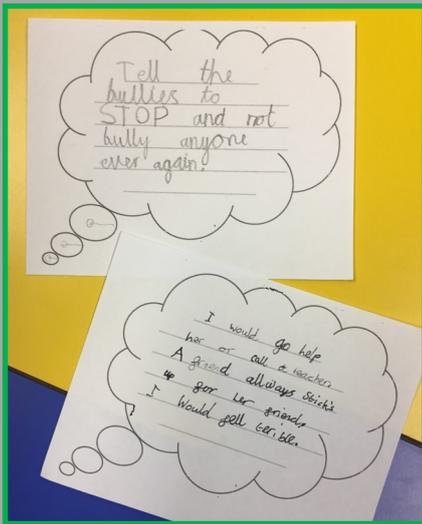 Tell the
bullies to
STOP and not
bully anyone
ever again.
I would go help
her or call a teacher.
A friend allways stick's
up for her friend.
I would fell terible.